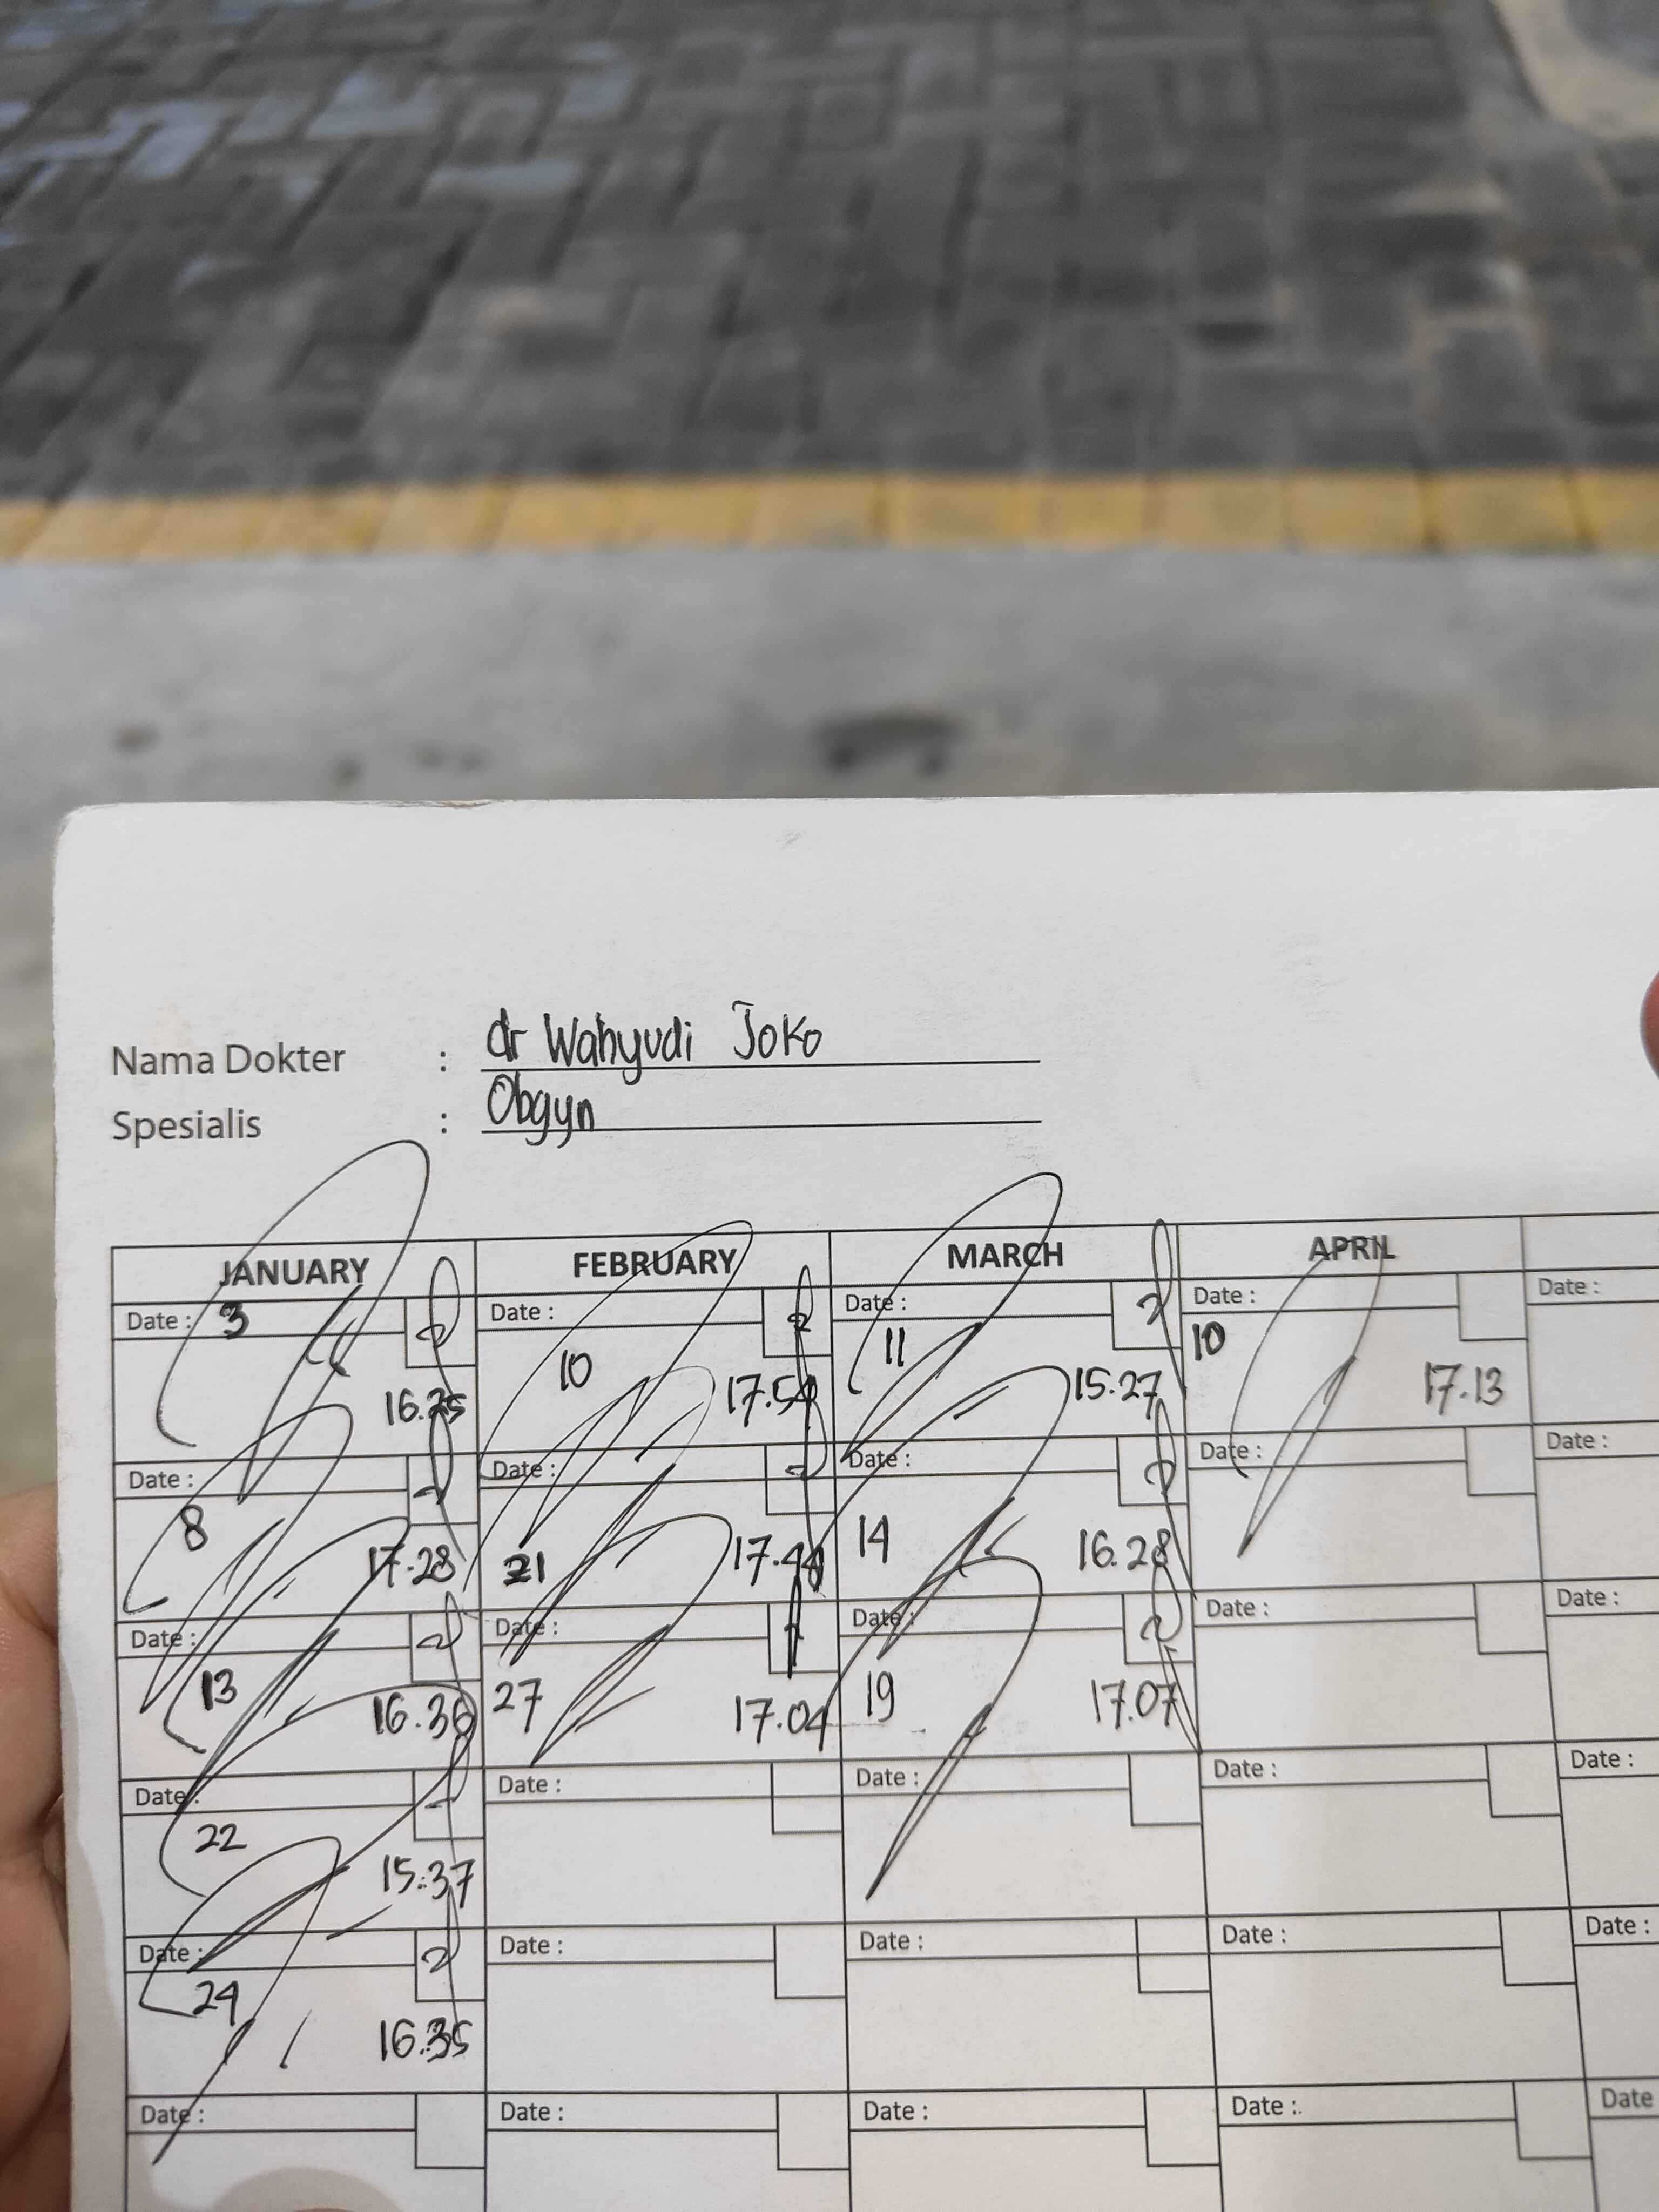 Nama Dokter : dr Wahyudi Joko
Spesialis : Obgyn
JANUARY FEBRUARY MARCH APRIL
Date : 3 Date : Date : Date : Date :
10 11 10
16.25 17.54 15.27 17.13
Date : Date : Date : Date : Date :
8 21 14
17.28 17.44 16.28
Date : Date : Date : Date : Date :
13 27 19
16.36 17.04 17.07
Date : Date : Date : Date : Date :
22
15.37
Date : Date : Date : Date : Date :
24
16.35
Date : Date : Date : Date : Date